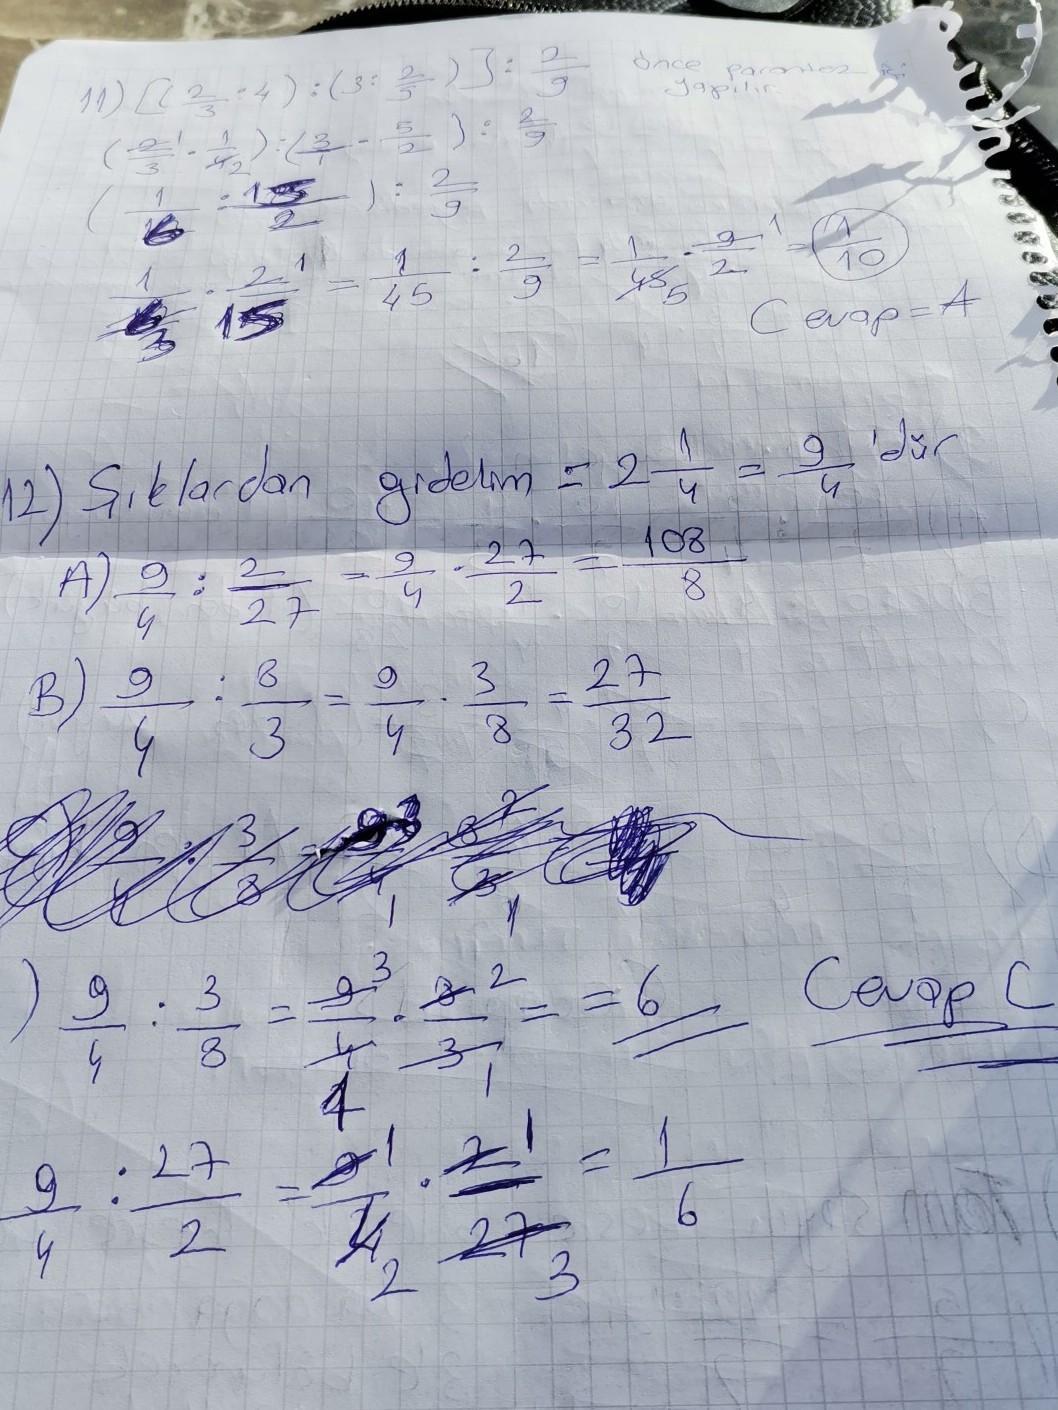 11) [(2/3 : 4) : (3 : 2/5)] : 2/9 Önce parantez içi
yapılır.
(2/3 1 . 1/4 2) : (3/1 . 5/2) : 2/9
(1/6 : 15/2) : 2/9
1/6 3 . 2 1/15 = 1/45 : 2/9 = 1/45 5 . 9 1/2 = 1/10
Cevap = A
12) Şıklardan gidelim = 2 1/4 = 9/4 'dür
A) 9/4 : 2/27 = 9/4 . 27/2 = 108/8
B) 9/4 : 8/3 = 9/4 . 3/8 = 27/32
) 9/4 : 3/8 = 9 3/4 1 . 8 2/3 1 = = 6 Cevap C
9/4 : 27/2 = 9 1/4 2 . 2 1/27 3 = 1/6